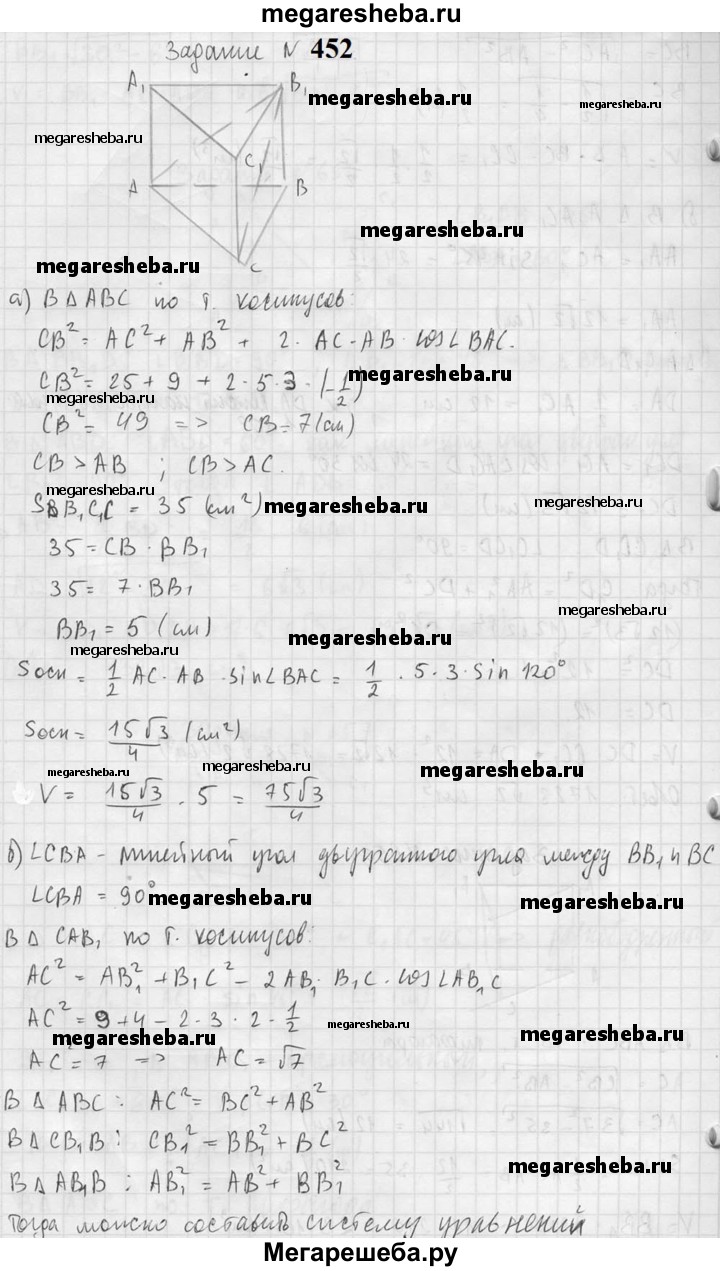 megaresheba.ru
Задание N 452
A₁ B₁
megaresheba.ru
megaresheba.ru
C₁
A B
megaresheba.ru
megaresheba.ru
C
а) В Δ ABC по т. косинусов:
CB² = AC² + AB² + 2 · AC · AB · cos∠BAC.
megaresheba.ru
CB² = 25 + 9 + 2 · 5 · 3 · (-1/2)
megaresheba.ru
CB² = 49 => CB = 7 (см)
CB > AB ; CB > AC.
megaresheba.ru
SBB₁C₁C = 35 (см²)
megaresheba.ru
megaresheba.ru
35 = CB · BB₁
35 = 7 · BB₁
megaresheba.ru
BB₁ = 5 (см)
megaresheba.ru
megaresheba.ru
Sосн = 1/2 AC · AB · sin∠BAC = 1/2 · 5 · 3 · sin 120°
Sосн = 15√3/4 (см²)
megaresheba.ru
megaresheba.ru
megaresheba.ru
V = 15√3/4 · 5 = 75√3/4
б) ∠CBA - линейный угол двугранного угла между BB₁ и BC
∠CBA = 90°
megaresheba.ru
megaresheba.ru
В Δ CAB₁ по т. косинусов:
AC² = AB₁² + B₁C² - 2AB₁ · B₁C · cos∠AB₁C
AC² = 9 + 4 - 2 · 3 · 2 · 1/2
megaresheba.ru
megaresheba.ru
megaresheba.ru
AC² = 7 => AC = √7
В Δ ABC : AC² = BC² + AB²
В Δ CB₁B : CB₁² = BB₁² + BC²
megaresheba.ru
В Δ AB₁B : AB₁² = AB² + BB₁²
Тогда можно составить систему уравнений
Мегарешеба.ру